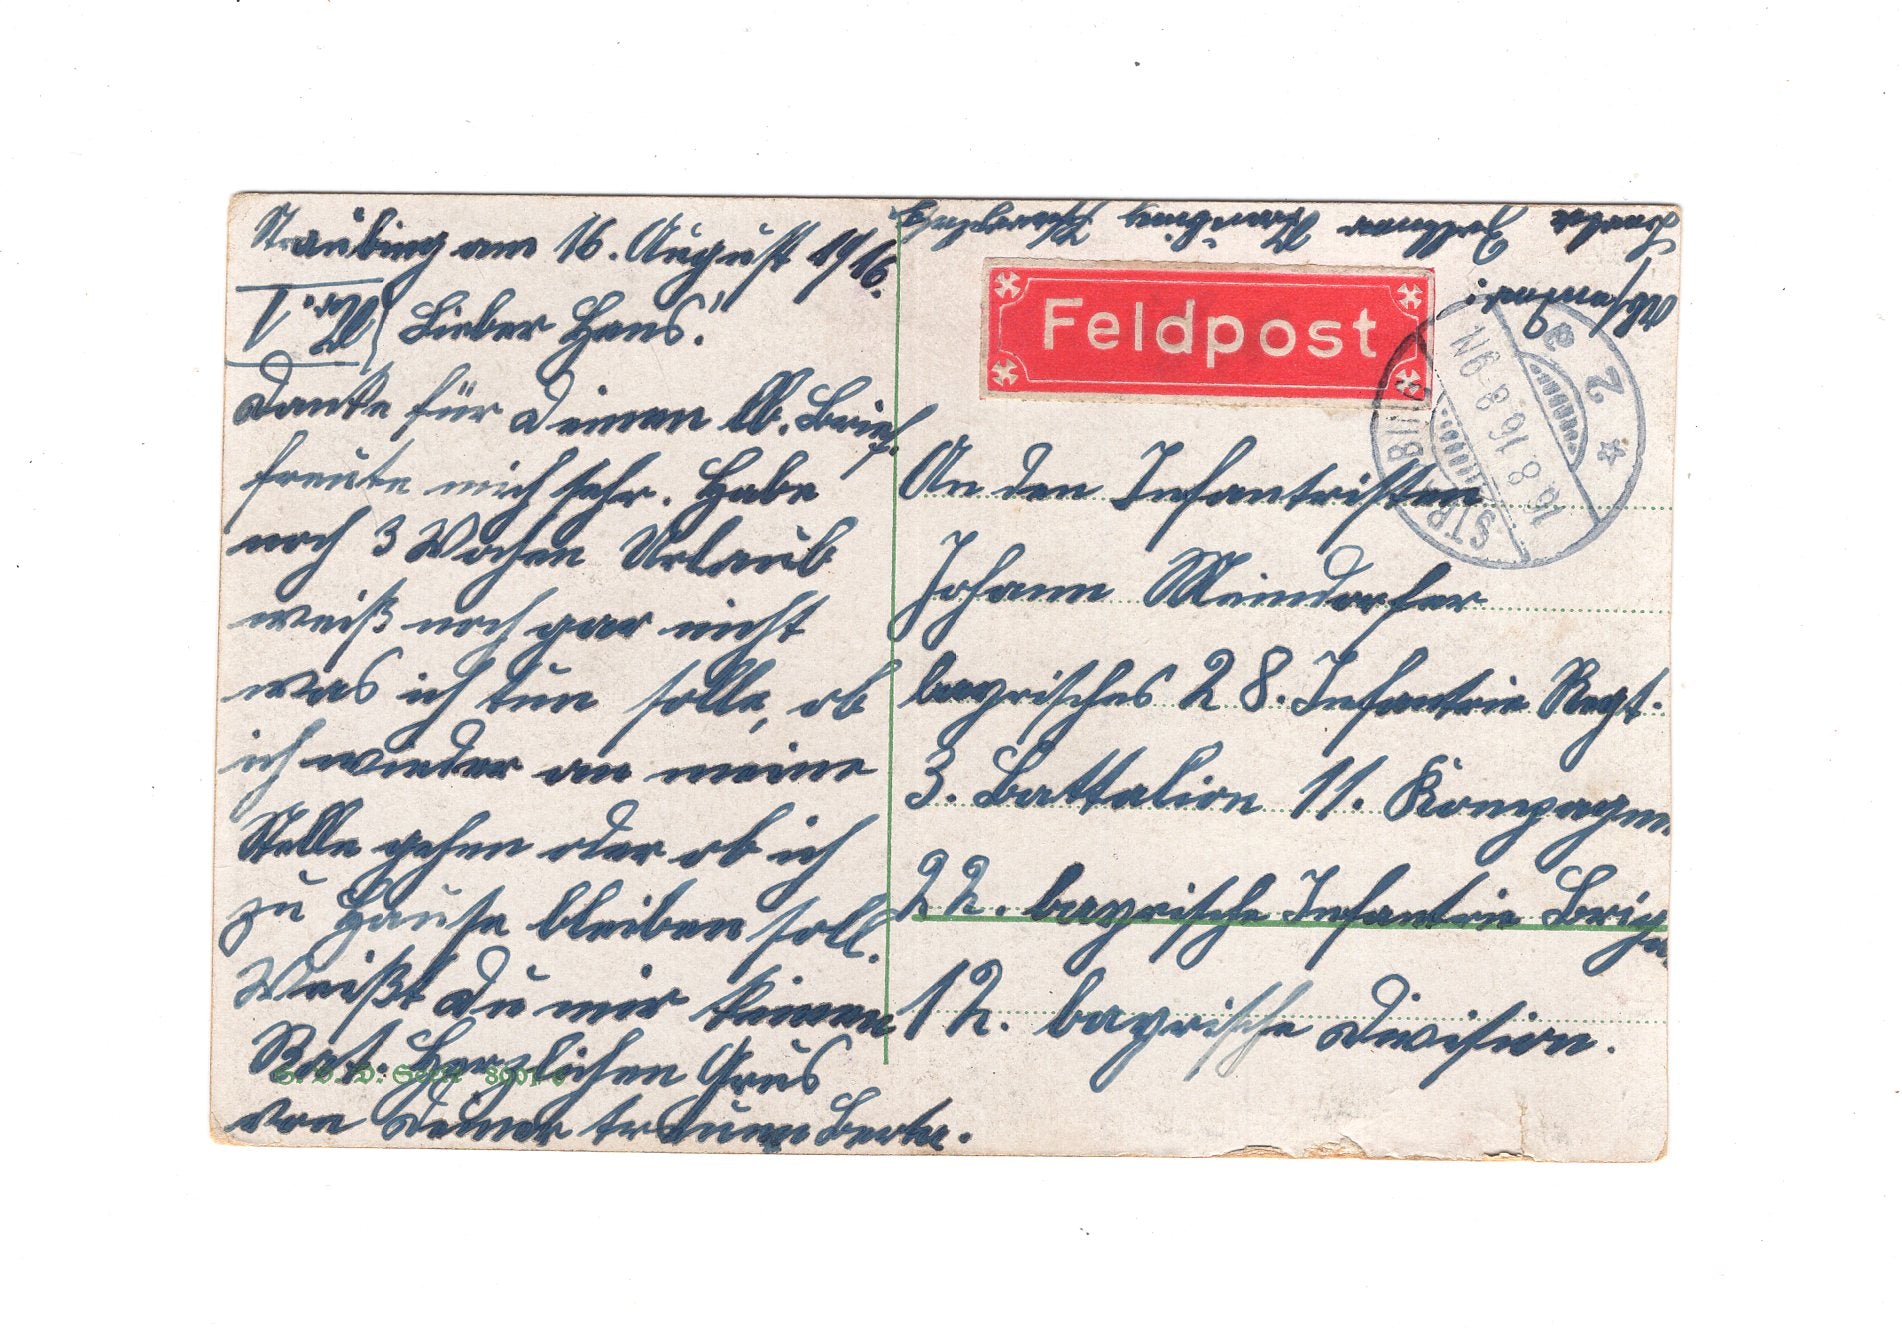 Straubing am 16. August 1916.
Nr. 1
Lieber Hans!
Danke für Deinen lb. Brief.
freute mich sehr. Habe
noch 3 Wochen Urlaub
weiß noch gar nicht
was ich tun solle, ob
ich wieder an meine
Stelle gehen oder ob ich
zu Hause bleiben soll.
Weißt Du mir keinen
Rat. Herzlichen Grus
von Deiner treuen Berta.
Absender:
Berta Zellner Straubing
Feldpost
STRAUBING 2
16.8.16.8-9N.
An den Infanteristen
Johann Meindorfer
bayrisches 28. Infantrie Regt.
3. Battalion 11. Kompagnie
22. bayrische Infantrie Briga
12. bayrische Division.